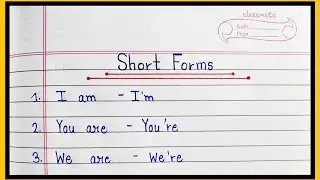 classmate
Date
Page
Short Forms
1. I am - I'm
2. You are - You're
3. We are - We're